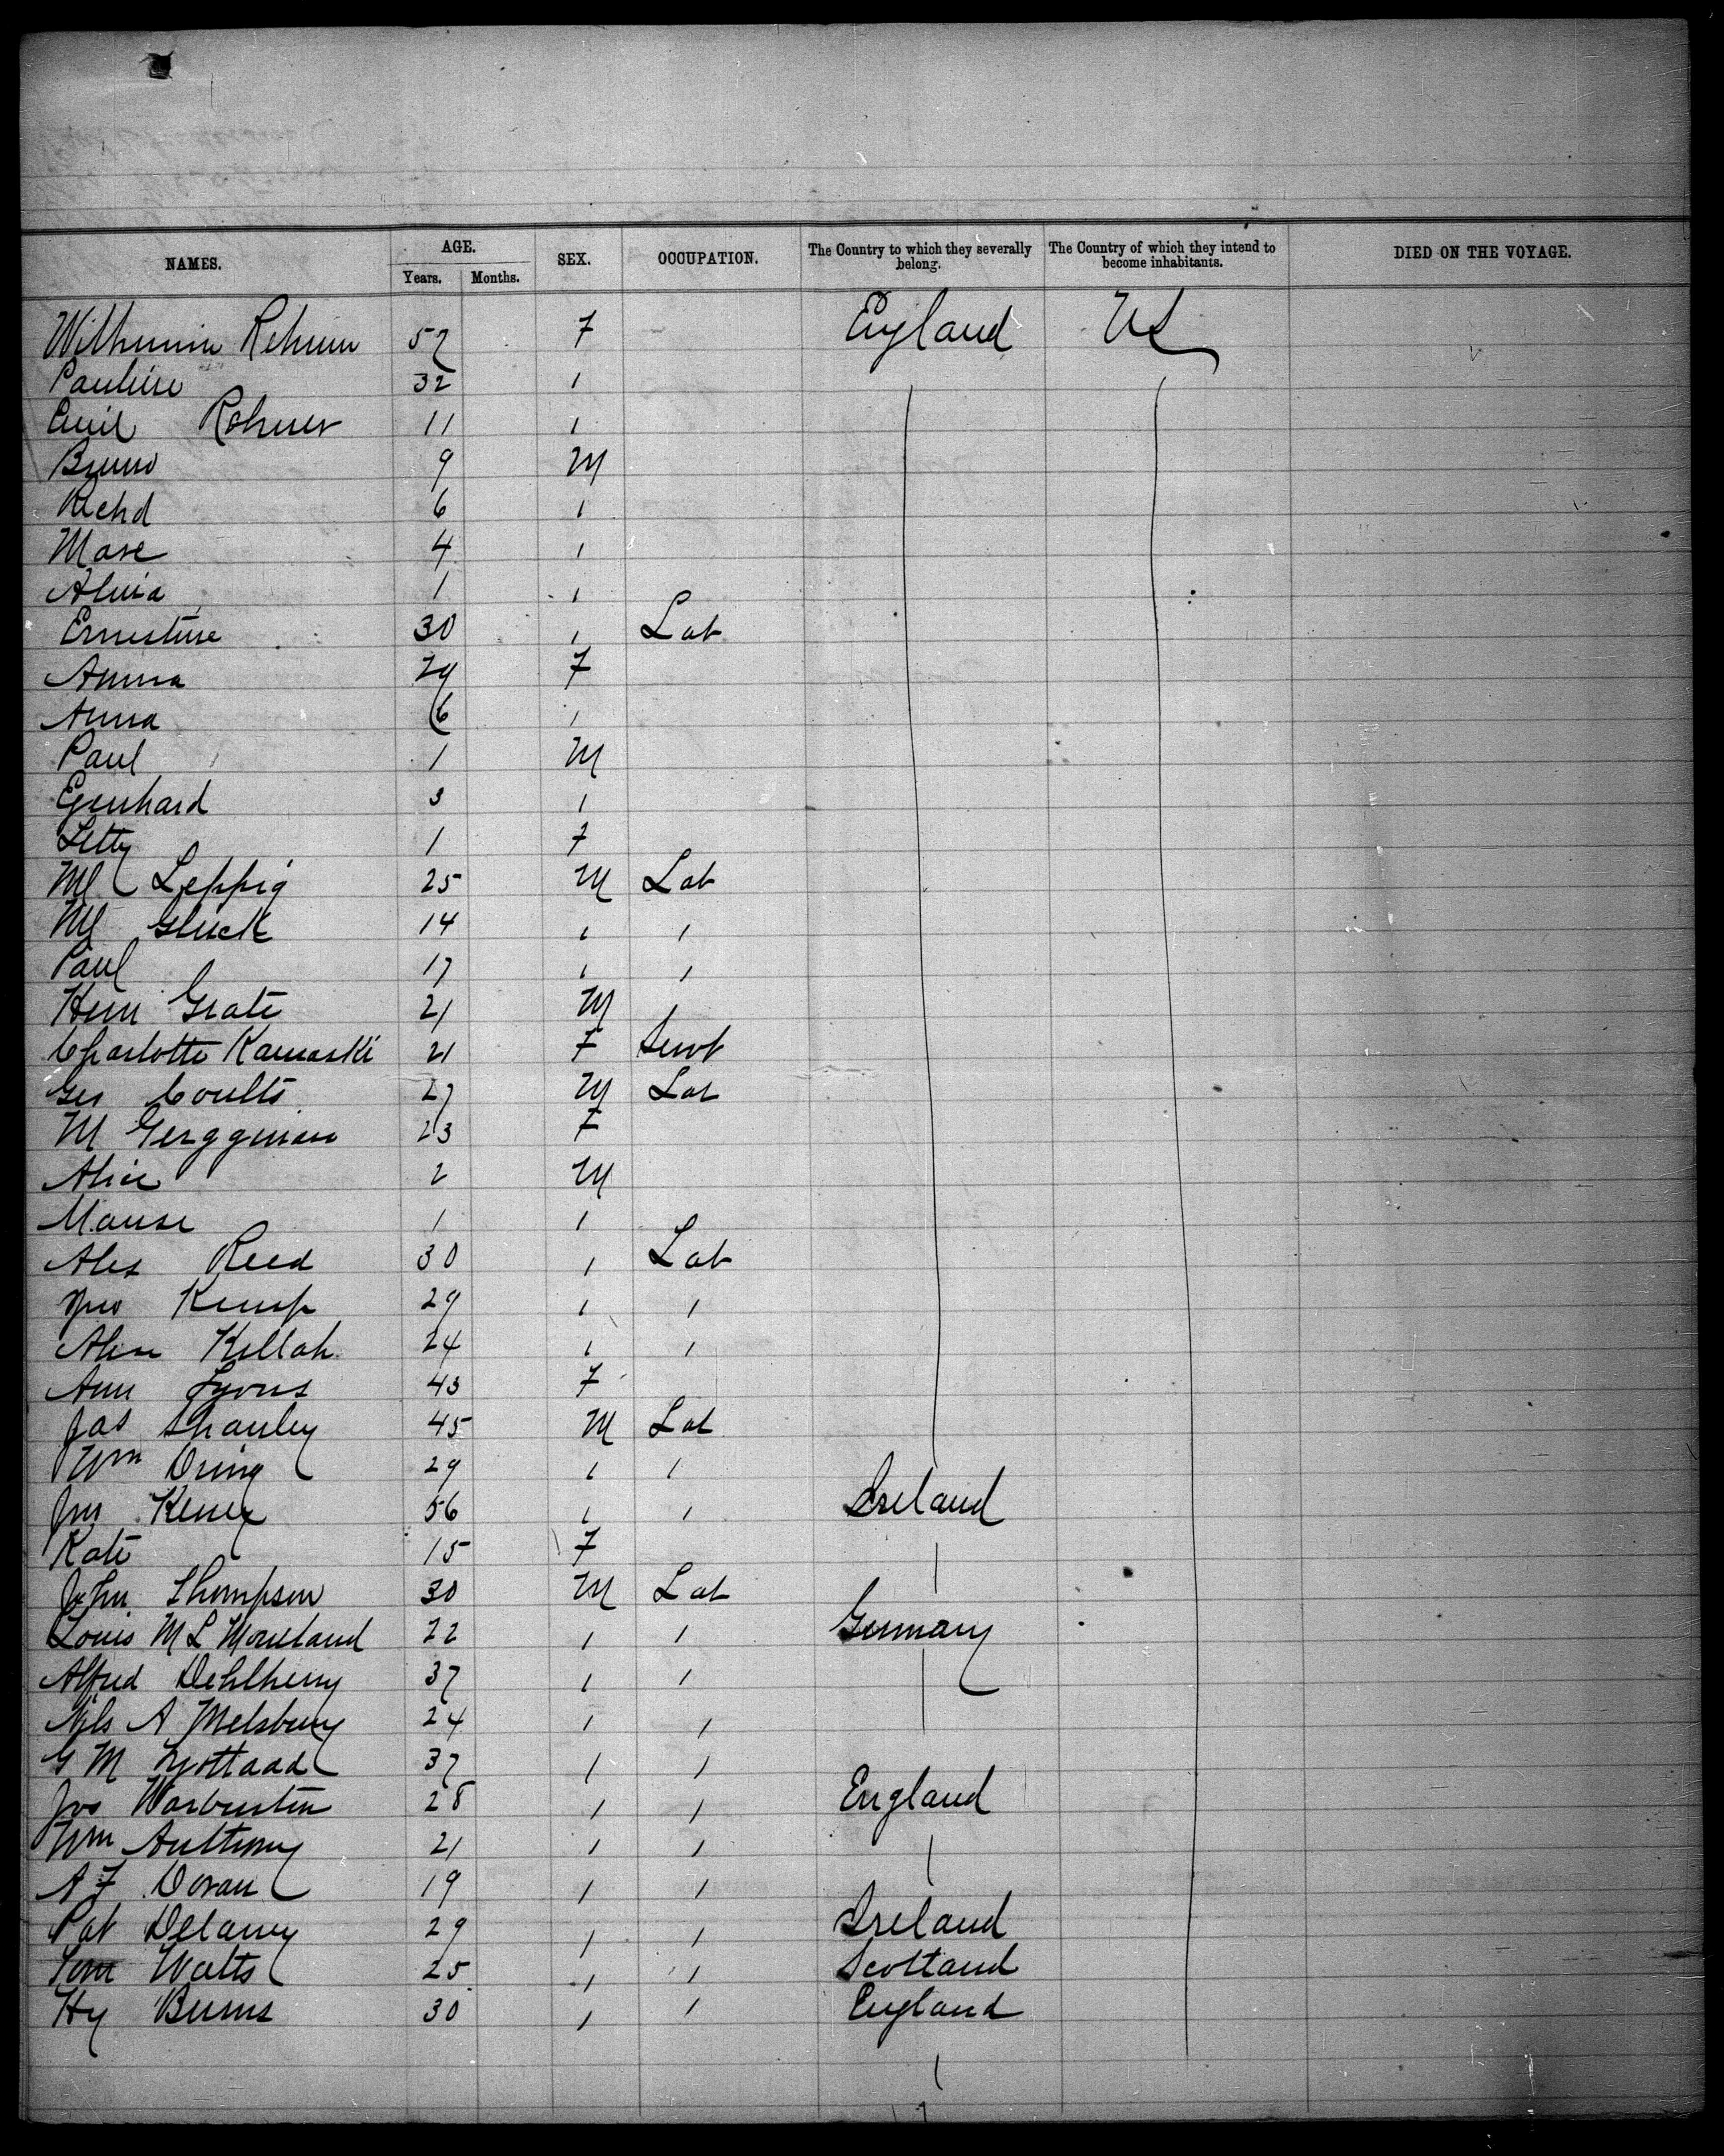 NAMES. AGE. SEX. OCCUPATION. The Country to which they severally belong. The Country of which they intend to become inhabitants. DIED ON THE VOYAGE.
Years. Months.
52 F England US
Pauline 32 "
Emil Rohner 11 "
Bruno 9 M
Richd 6 "
4 "
1 "
Ernestine 30 " Lab
29 F
Anna 6 "
Paul 1 M
3 "
Letty 1 F
Ml Leppig 25 M Lab
Ml Gluck 14 " "
Paul 17 " "
Herm Grate 21 M
Charlotte Kamaski 21 F Servt
Geo Coults 27 M Lab
M 23 F
Alice 2 M
1 "
Alex Reed 30 " Lab
Jno Kemp 29 " "
Kellah 24 " "
Ann Lyons 43 F
Jas Shanley 45 M Lab
Wm Dring 29 " "
Jno 56 " " Ireland
Kate 15 F
John Thompson 30 M Lab
Louis M L 22 " " Germany
Alfred 37 " "
Nils A Melsburg 24 " "
G M 37 " "
Jos Warburton 28 " " England
Wm Anthony 21 " "
A F Doran 19 " "
Pat Delaney 29 " " Ireland
Tom Watts 25 " " Scotland
Hy Burns 30 " " England